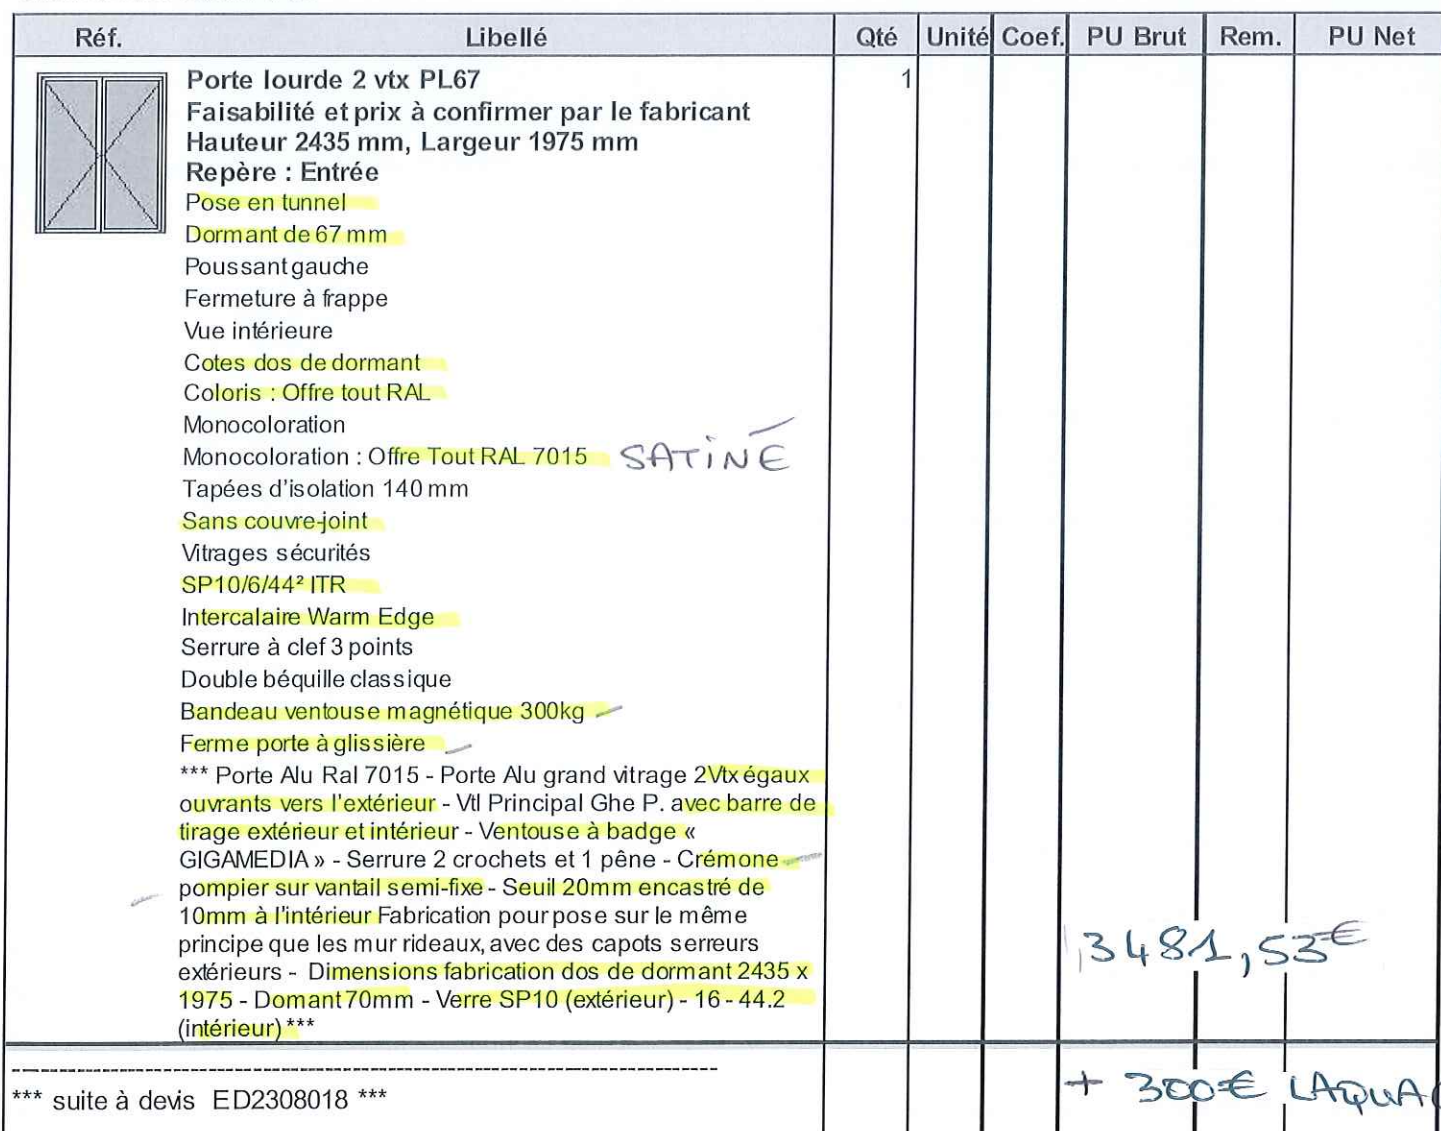 Réf. Libellé Qté Unité Coef. PU Brut Rem. PU Net
Porte lourde 2 vtx PL67 1
Faisabilité et prix à confirmer par le fabricant
Hauteur 2435 mm, Largeur 1975 mm
Repère : Entrée
Pose en tunnel
Dormant de 67 mm
Poussant gauche
Fermeture à frappe
Vue intérieure
Cotes dos de dormant
Coloris : Offre tout RAL
Monocoloration
Monocoloration : Offre Tout RAL 7015 SATINÉ
Tapées d'isolation 140 mm
Sans couvre-joint
Vitrages sécurités
SP10/6/44² ITR
Intercalaire Warm Edge
Serrure à clef 3 points
Double béquille classique
Bandeau ventouse magnétique 300kg
Ferme porte à glissière
*** Porte Alu Ral 7015 - Porte Alu grand vitrage 2Vtx égaux
ouvrants vers l'extérieur - Vtl Principal Ghe P. avec barre de
tirage extérieur et intérieur - Ventouse à badge «
GIGAMEDIA » - Serrure 2 crochets et 1 pêne - Crémone
pompier sur vantail semi-fixe - Seuil 20mm encastré de
10mm à l'intérieur Fabrication pour pose sur le même
principe que les mur rideaux, avec des capots serreurs
extérieurs - Dimensions fabrication dos de dormant 2435 x
1975 - Domant 70mm - Verre SP10 (extérieur) - 16 - 44.2
(intérieur) ***
3481,53€
+ 300€ LAQUA
*** suite à devis ED2308018 ***